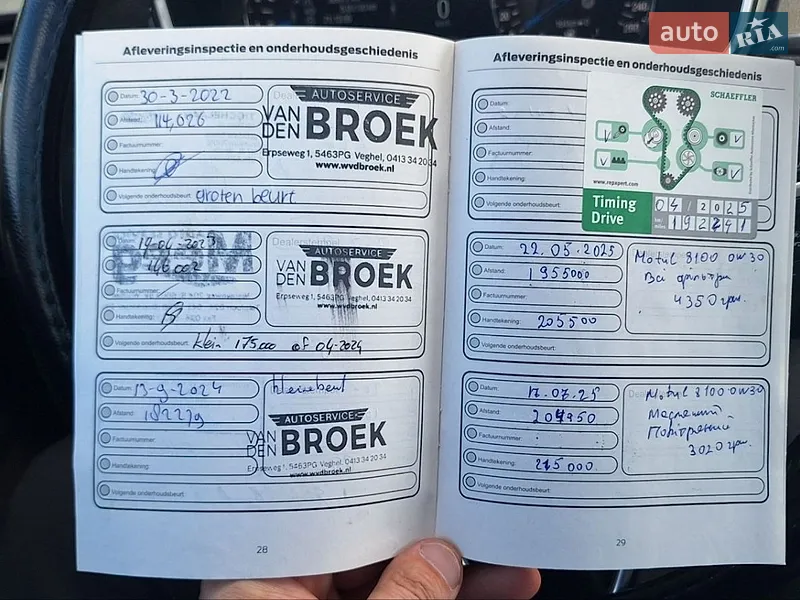 auto RIA .com
Afleveringsinspectie en onderhoudsgeschiedenis
Datum: 30-3-2022
Afstand: 114,026
Factuurnummer:
Handtekening:
Volgende onderhoudsbeurt: groten beurt
AUTOSERVICE
VAN DEN BROEK
Erpseweg 1, 5463PG Veghel, 0413 34 20 34
www.wvdbroek.nl
Datum: 19-04-2023
Afstand: 146.002
Factuurnummer:
Handtekening:
Volgende onderhoudsbeurt: klein 175.000 of 04-2024
AUTOSERVICE
VAN DEN BROEK
Erpseweg 1, 5463PG Veghel, 0413 34 20 34
www.wvdbroek.nl
Datum: 13-9-2024
Afstand: 182279
Factuurnummer:
Handtekening:
Volgende onderhoudsbeurt:
kleinebeurt
AUTOSERVICE
VAN DEN BROEK
Erpseweg 1, 5463PG Veghel, 0413 34 20 34
www.wvdbroek.nl
28
Afleveringsinspectie en onderhoudsgeschiedenis
Datum:
Afstand:
Factuurnummer:
Handtekening:
Volgende onderhoudsbeurt:
SCHAEFFLER
www.repxpert.com
Timing Drive
04 / 2025
192241
Datum: 22.05.2025
Afstand: 1955000
Factuurnummer:
Handtekening: 205500
Volgende onderhoudsbeurt:
Motul 8100 0w30
Всі фільтри
4350 грн.
Datum: 17.07.25
Afstand: 204950
Factuurnummer:
Handtekening: 215000
Volgende onderhoudsbeurt:
Motul 8100 0w30
Масляний
Повітряний
3020 грн.
29